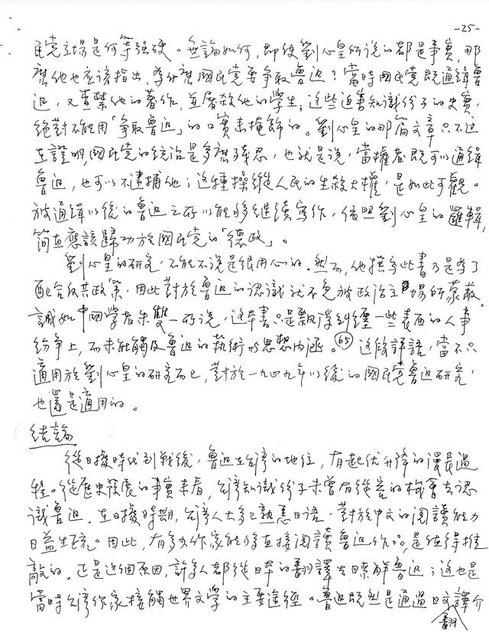 -25-
民党立場是何等强硬。無論如何,即使劉心皇所说的都是事實,那
麽他也应該指出,為什麽國民党要爭取魯迅?當時國民党既通緝魯
迅,又查禁他的著作,並屠殺他的學生,这些迫害知識份子的史實,
絕對不能用「爭取魯迅」的口實来掩飾的。劉心皇的那篇文章只不过
在證明,國民党的統治是多麽殘忍,也就是说,當權者既可以通緝
魯迅,也可以不逮捕他;这種操縱人民的生殺大權,是如此可觀。
被通緝以後的魯迅之所以能够继續寫作,倘照劉心皇的邏輯,
简直應該歸功於國民党的「德政」。
劉心皇的研究,不能不说是很用心的。然而,他撰写此書乃是為了
配合反共政策,因此對於魯迅的認識就不免被政治立場所蒙蔽。
誠如中國學者朱雙一所说,这本書只是飘浮糾纏一些表面的人事
紛爭上,而未能觸及魯迅的執術的思想内涵。(65)这條評語,當不只
適用於劉心皇的研究而已,對於一九四九年以後的國民党魯迅研究,
也還是適用的。
结論
從日據時代到戰後,魯迅在台湾的地位,有起伏升降的漫長過
程。從歷史發展的事實来看,台湾知識份子未曾有從容的机會去認
識魯迅。在日據時期,台湾人大多熟悉日语,對於中文的阅讀能力
日益生疏。因此,有多少作家能够直接阅讀魯迅作品是值得推
敲的。正是这個原因,許多人都從日本的翻譯去瞭解魯迅;这也是
當時台湾作家接觸世界文學的主要途經。魯迅既然是通過日文翻譯介